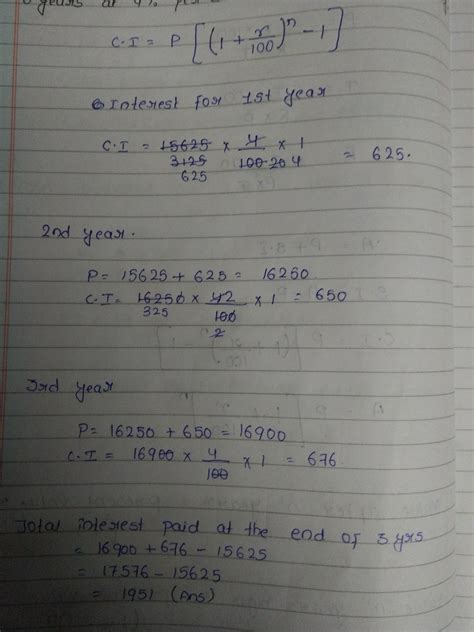 years at 4% per
C.I = P [(1 + r/100)^n - 1]
Interest for 1st year
C.I = 15625 × 4/100 × 1 = 625.
3125 20 4
625
2nd year.
P = 15625 + 625 = 16250
C.I = 16250 × 4/100 × 1 = 650
325 2
2
3rd year
P = 16250 + 650 = 16900
C.I = 16900 × 4/100 × 1 = 676
Total interest paid at the end of 3 yrs
= 16900 + 676 - 15625
= 17576 - 15625
= 1951 (Ans)